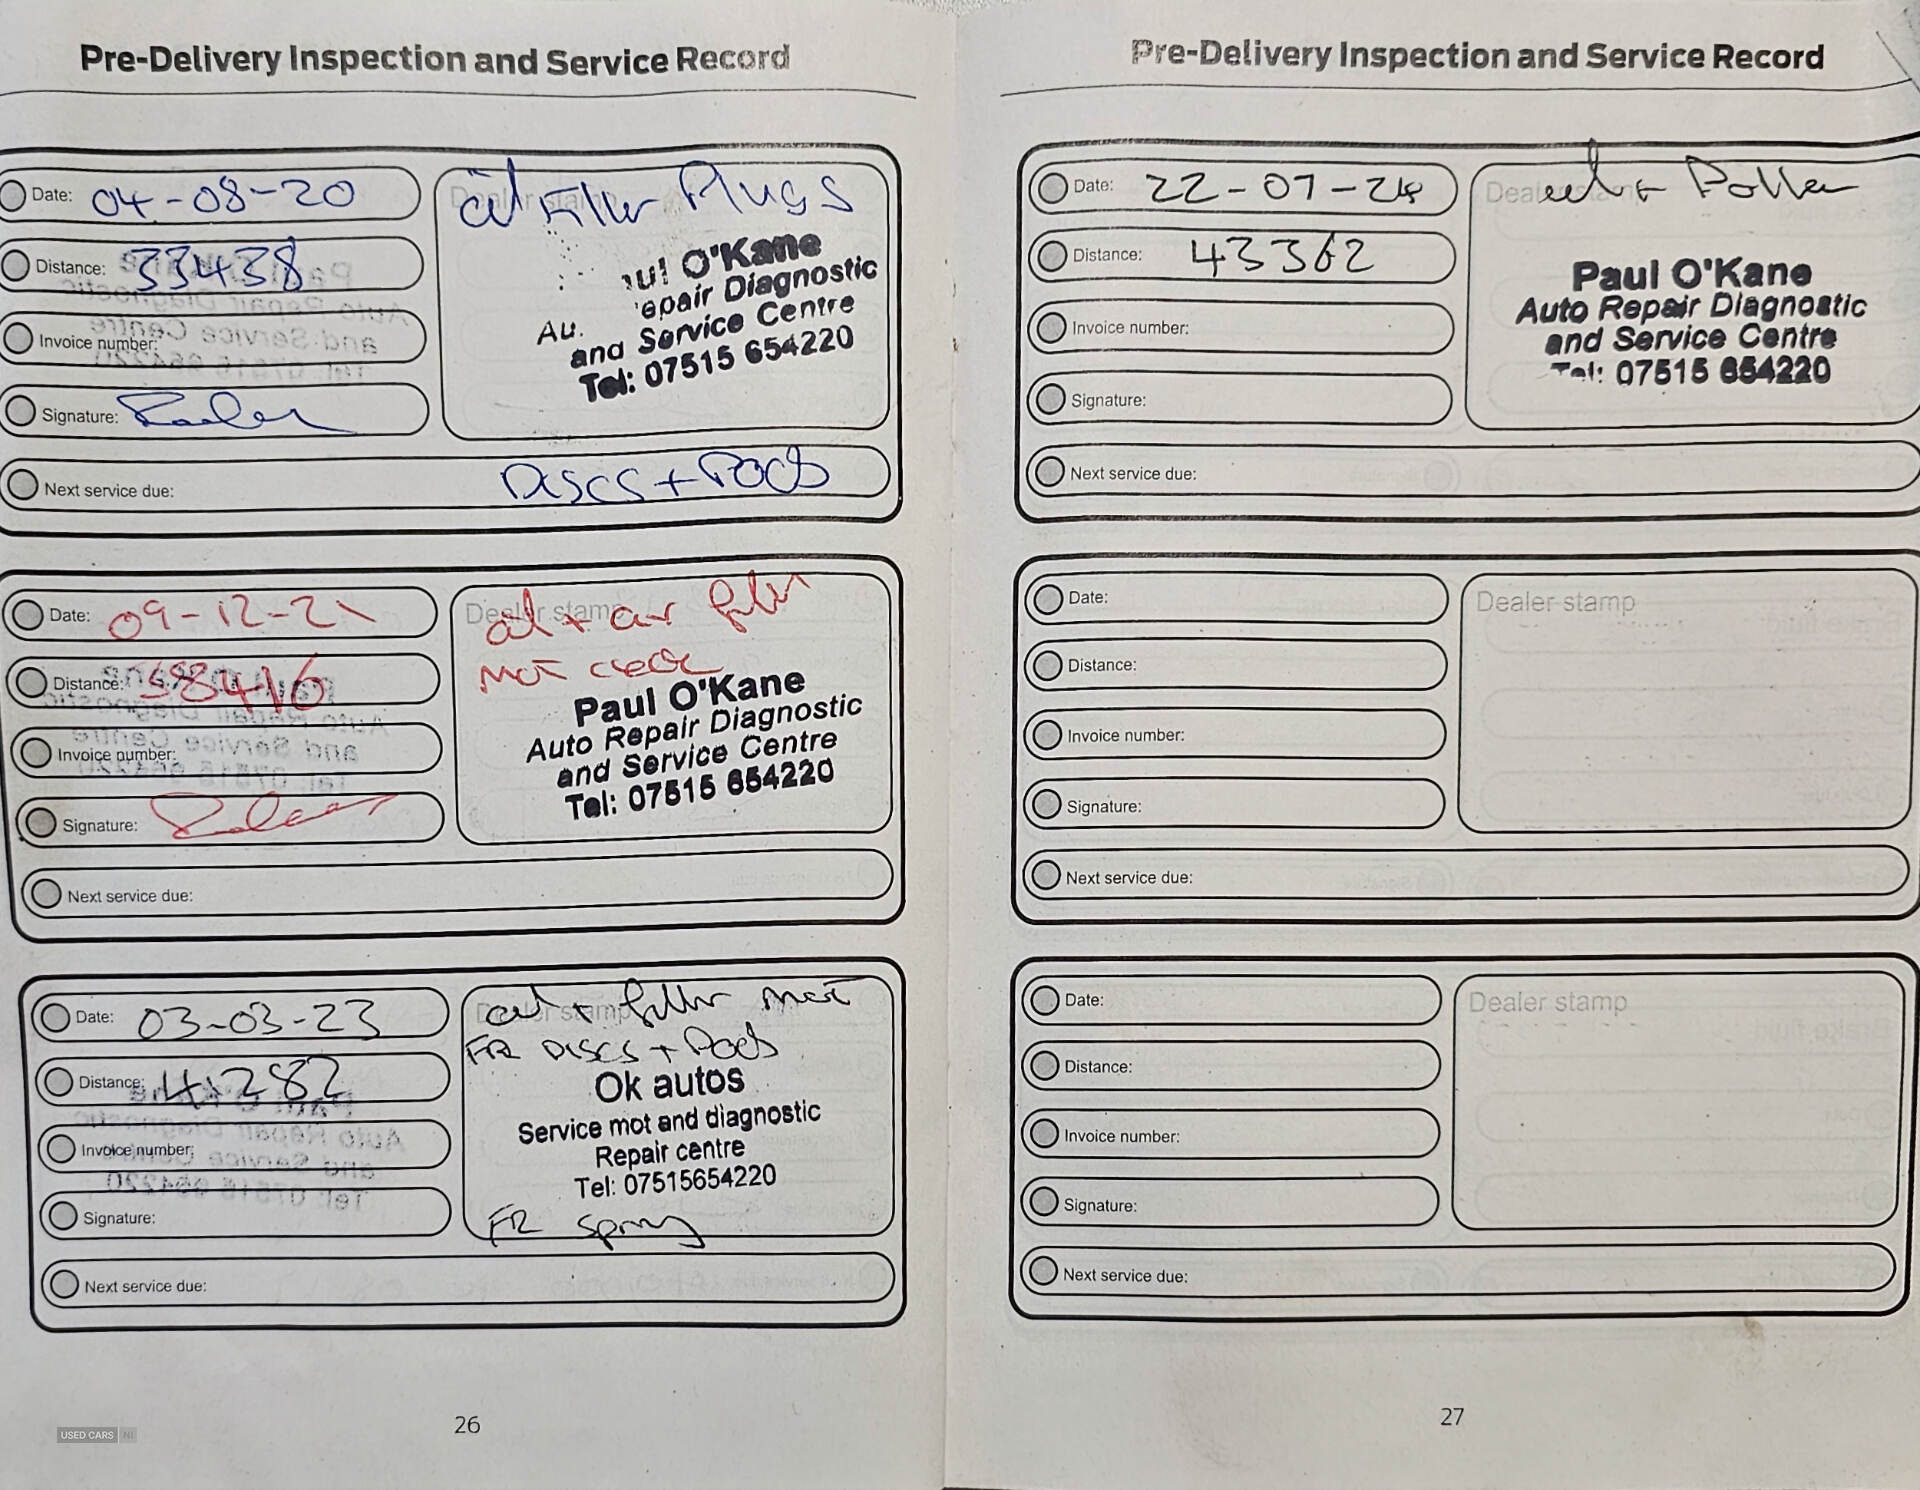 Pre-Delivery Inspection and Service Record
Date: 04-08-20
Distance: 33438
Invoice number:
Signature:
oil Filter Plugs
Paul O'Kane
Au. epair Diagnostic
and Service Centre
Tel: 07515 654220
Next service due: Discs + Pads
Date: 09-12-21
Distance: 38416
Invoice number:
Signature:
Dealer stamp
oil + air filter
MOT
Paul O'Kane
Auto Repair Diagnostic
and Service Centre
Tel: 07515 654220
Next service due:
Date: 03-03-23
Distance: 41282
Invoice number:
Signature:
Dealer stamp
oil + filter mot
FR Discs + Pads
Ok autos
Service mot and diagnostic
Repair centre
Tel: 07515654220
FR spring
Next service due:
26
USED CARS NI
Pre-Delivery Inspection and Service Record
Date: 22-07-24
Distance: 43362
Invoice number:
Signature:
Dealer stamp
oil + Pollen
Paul O'Kane
Auto Repair Diagnostic
and Service Centre
Tel: 07515 654220
Next service due:
Date:
Distance:
Invoice number:
Signature:
Dealer stamp
Next service due:
Date:
Distance:
Invoice number:
Signature:
Dealer stamp
Next service due:
27